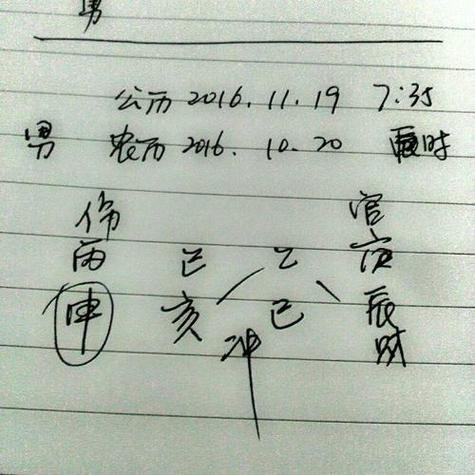 男
公历 2016.11.19 7:35
男 农历 2016.10.20 辰时
伤 官
丙 己 乙 庚
申 亥 巳 辰
冲 财